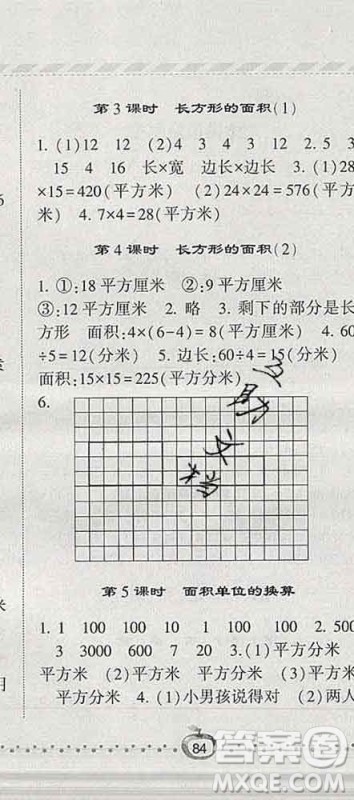 第3课时 长方形的面积(1)
1. (1)12 12 (2)4 3 4 3 12 2. 5 3
15 4 16 长×宽 边长×边长 3. (1)28
×15=420(平方米) (2)24×24=576(平方
米) 4. 7×4=28(平方米)
第4课时 长方形的面积(2)
1. ①:18平方厘米 ②:9平方厘米
③:12平方厘米 2. 略 3. 剩下的部分是长
方形 面积:4×(6-4)=8(平方厘米) 4. 60
÷5=12(分米) 5. 边长:60÷4=15(分米)
面积:15×15=225(平方分米)
6.
第5课时 面积单位的换算
1. 1 100 100 10 1 100 100 2. 500
3 3000 600 7 200 3. (1)平方厘米
平方米 (2)平方米 平方分米 (3)平方米
平方分米 4. (1)小男孩说得对 (2)两人
84
答案圈
MXQE.COM